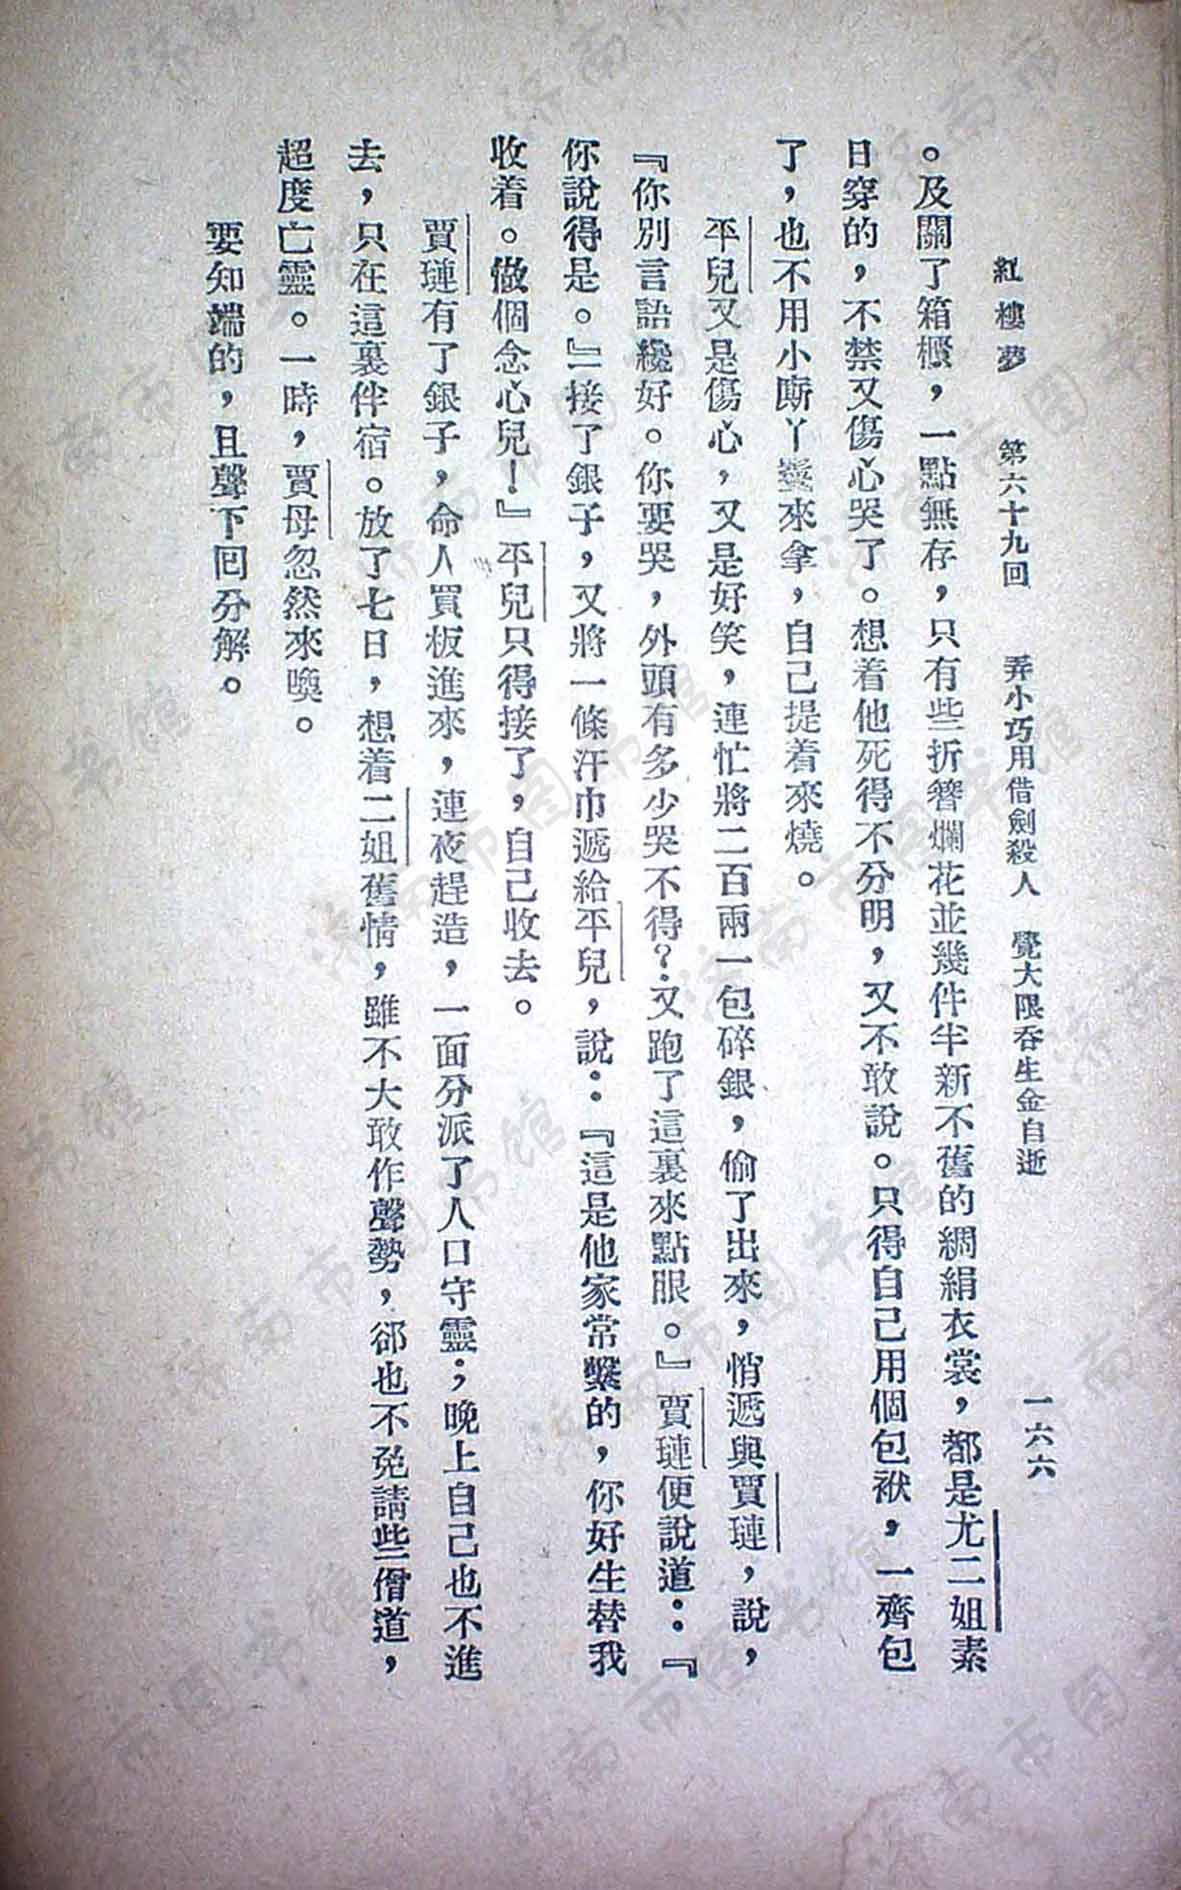 紅樓夢　第六十九回　弄小巧用借劍殺人　覺大限吞生金自逝　一六六
。及關了箱櫃，一點無存，只有些折簪爛花並幾件半新不舊的綢絹衣裳，都是尤二姐素
日穿的，不禁又傷心哭了。想着他死得不分明，又不敢說。只得自己用個包袱，一齊包
了，也不用小廝丫鬟來拿，自己提着來燒。
平兒又是傷心，又是好笑，連忙將二百兩一包碎銀，偷了出來，悄遞與賈璉，說，
『你別言語纔好。你要哭，外頭有多少哭不得？又跑了這裏來點眼。』賈璉便說道：『
你說得是。』一接了銀子，又將一條汗巾遞給平兒，說：『這是他家常繫的，你好生替我
收着。做個念心兒！』平兒只得接了，自己收去。
賈璉有了銀子，命人買板進來，連夜趕造，一面分派了人口守靈；晚上自己也不進
去，只在這裏伴宿。放了七日，想着二姐舊情，雖不大敢作聲勢，卻也不免請些僧道，
超度亡靈。一時，賈母忽然來喚。
要知端的，且聽下回分解。
济南市图书馆